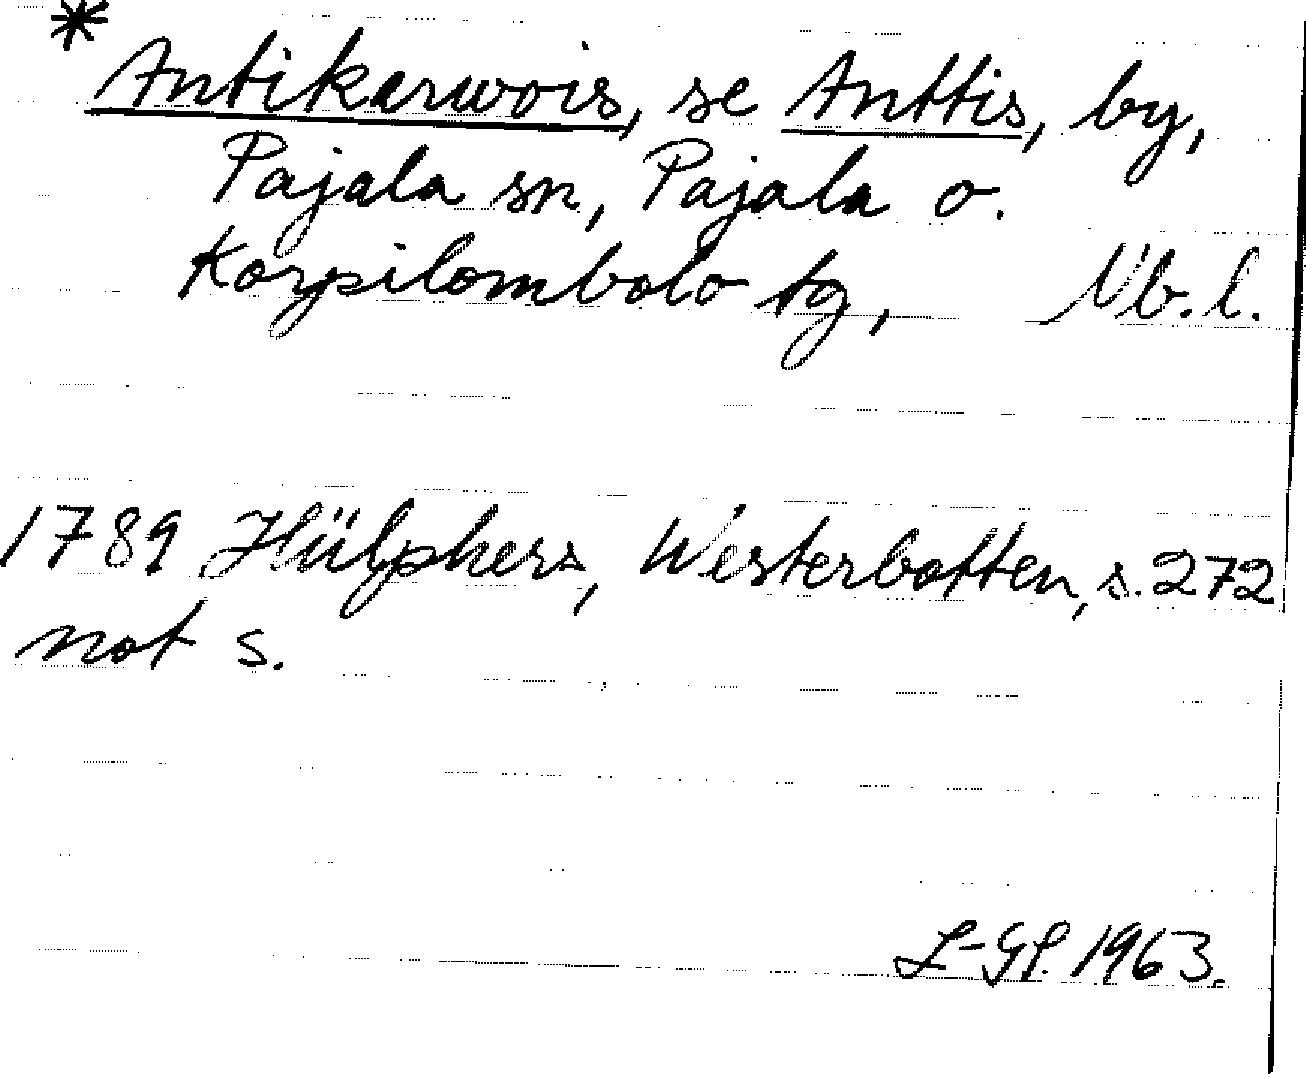 *
Antikarwois, se Anttis, by,
Pajala sn, Pajala o.
Korpilombolo tg, Nb. l.
1789 Hülphers, Westerbotten, s. 272
not s.
L-GP. 1963.